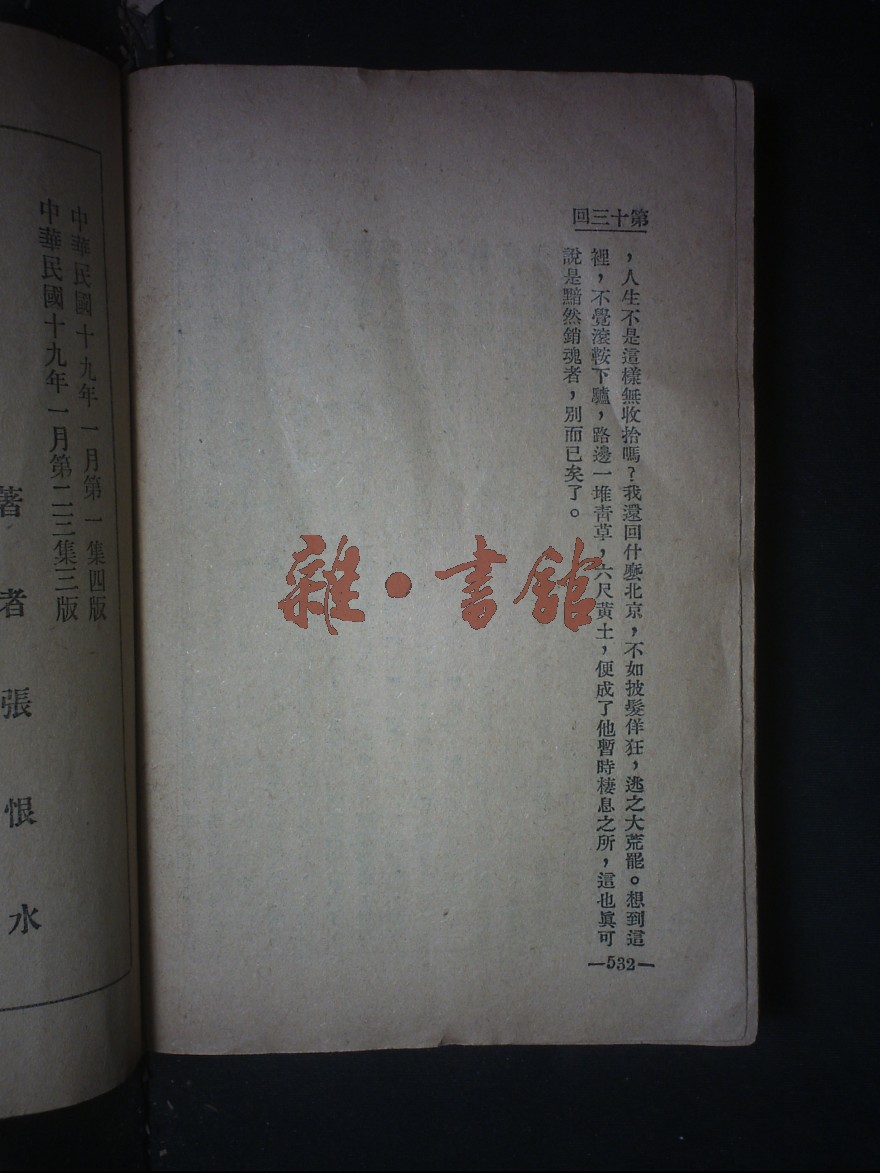 第十三回
，人生不是這樣無收拾嗎？我還回什麼北京，不如披髮佯狂，逃之大荒罷。想到這
裡，不覺滾鞍下驢，路邊一堆青草，六尺黃土，便成了他暫時棲息之所，這也眞可
說是黯然銷魂者，別而已矣了。
—532—
雜·書館
中華民國十九年一月第一集四版
中華民國十九年一月第二三集三版
著者張恨水